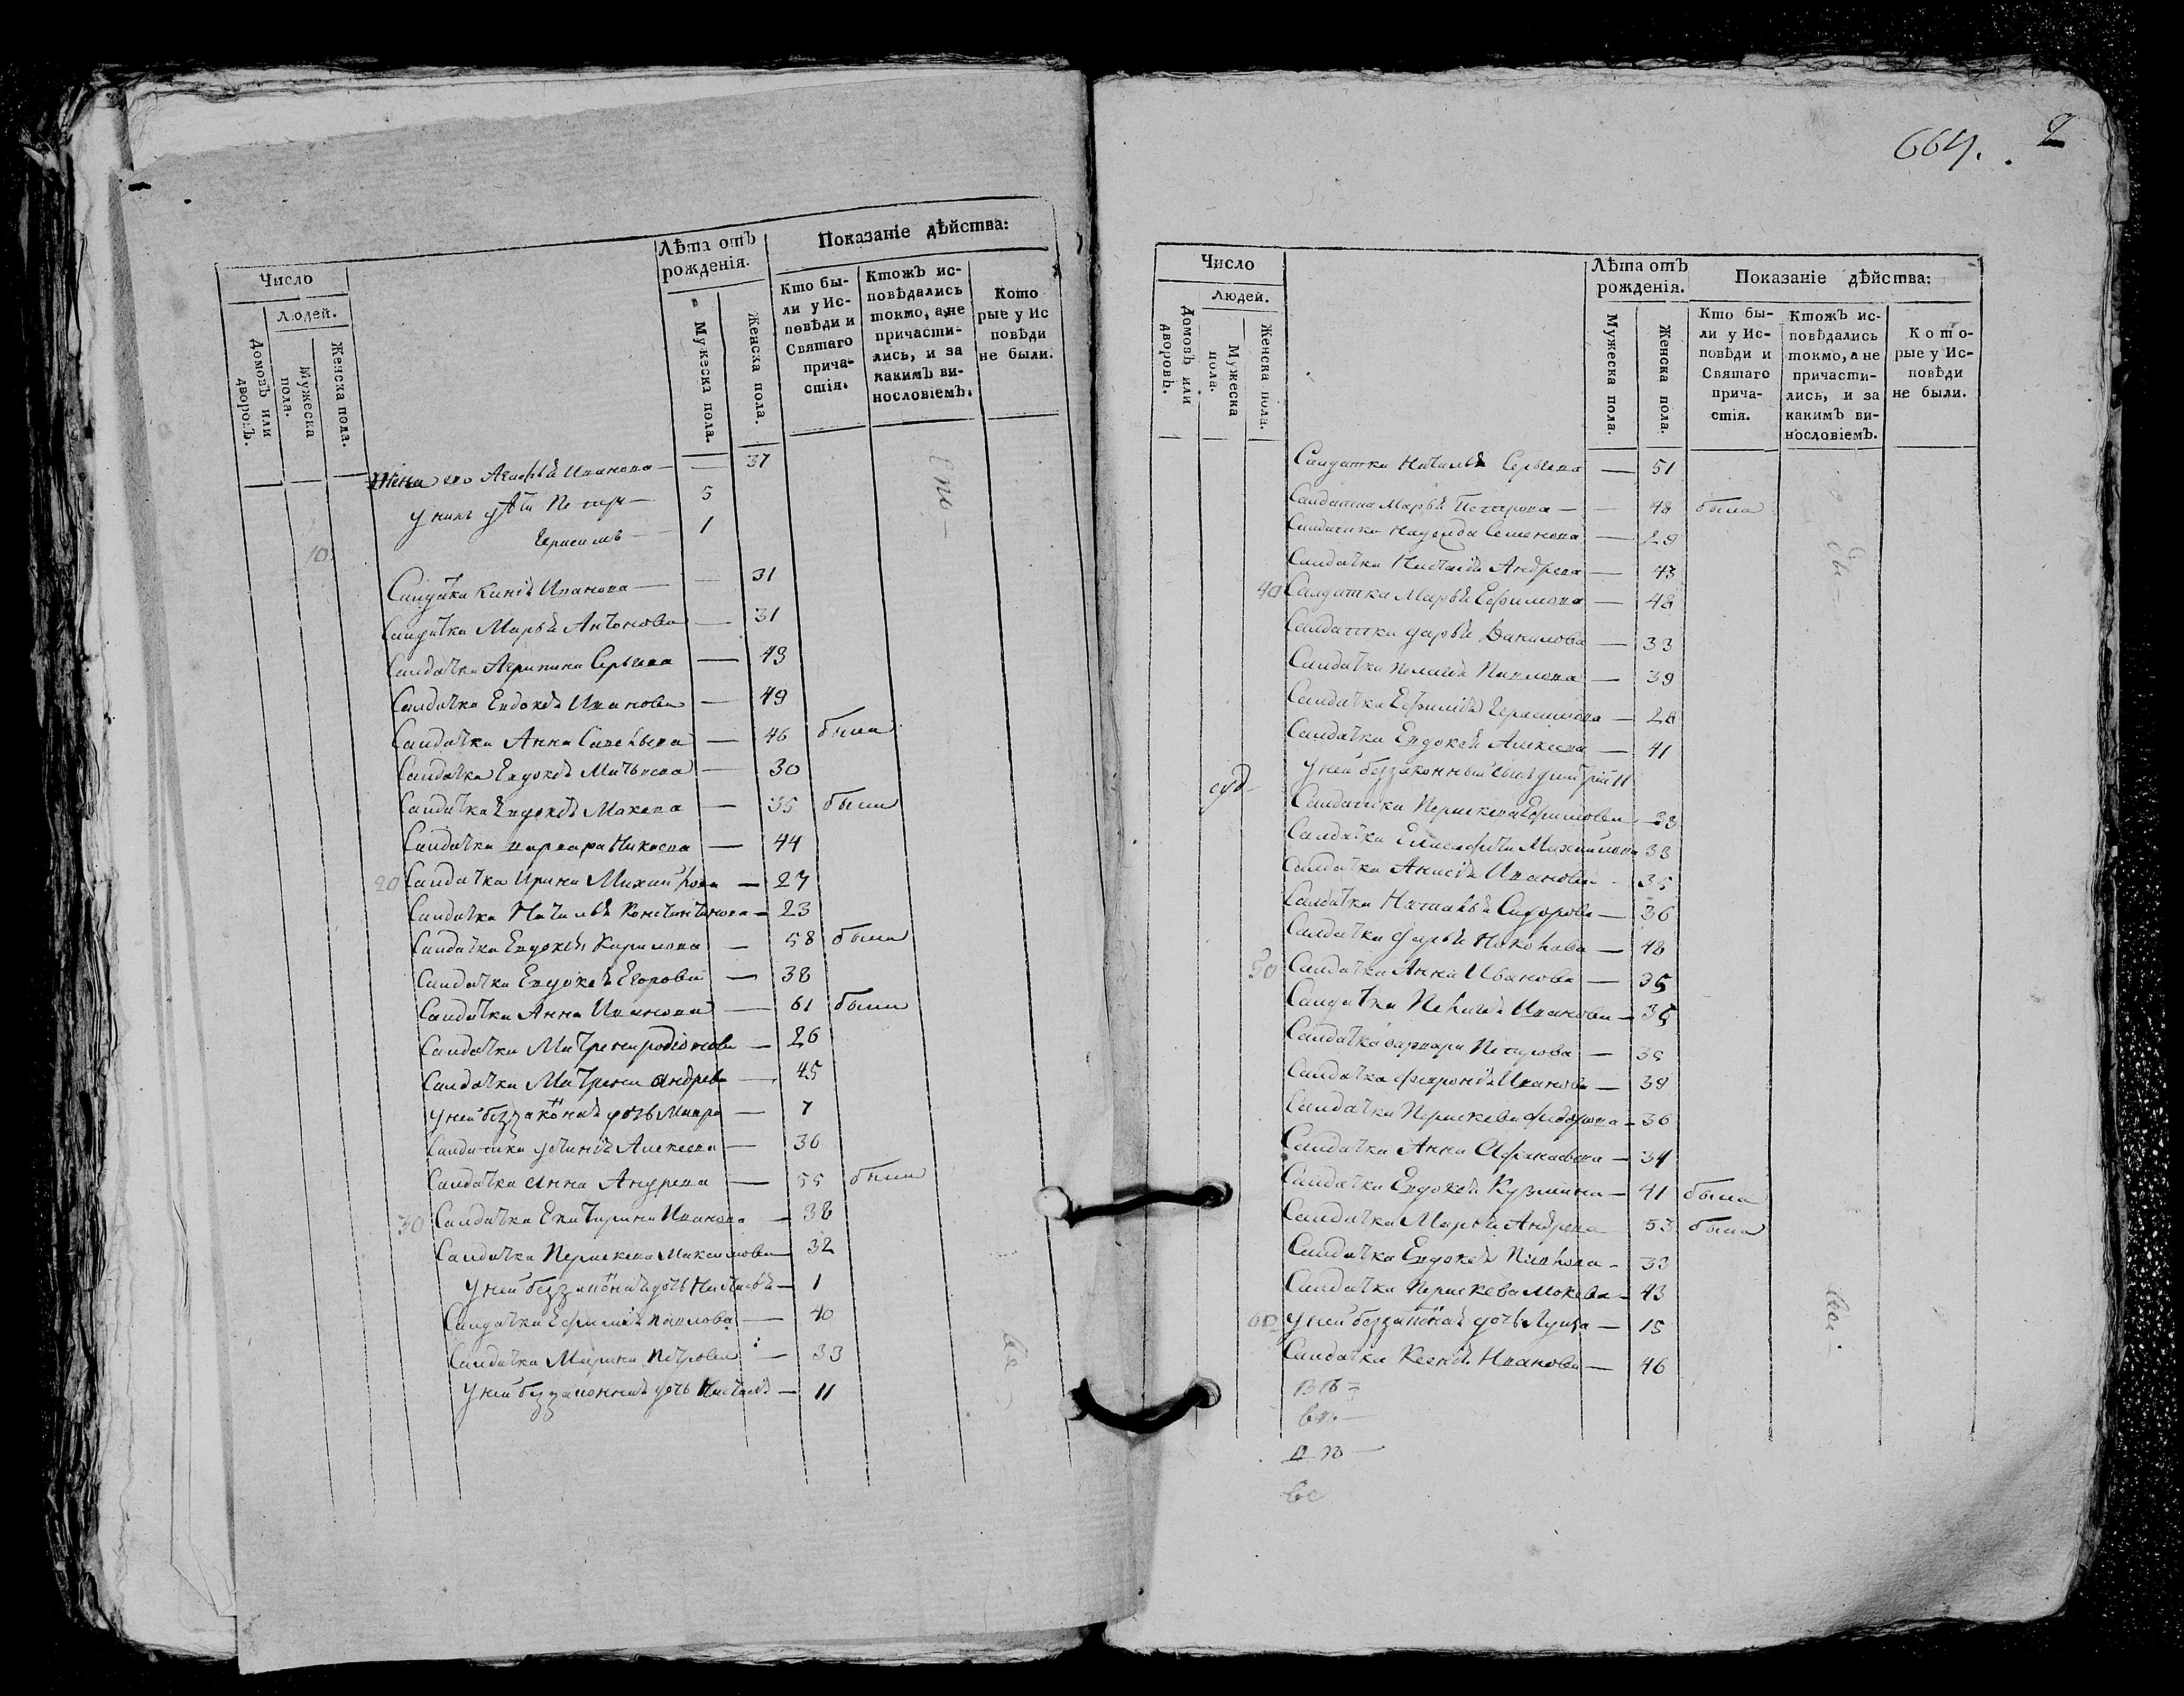 Число
Людей.
Домовъ или дворовъ.
Мужеска пола.
Женска пола.
Лѣта отъ рожденія.
Мужеска пола.
Женска пола.
Показаніе дѣйства:
Кто бы-
ли у Ис-
повѣди и
Святаго
прича-
стія.
Ктожъ ис-
повѣдались
токмо, а не
причасти-
лись, и за
какимъ ви-
нословіемъ.
Кото
рые у Ис
повѣди
не были.
Жена его Иванова — 37
У нихъ дѣти Петръ — 5
Герасимъ — 1
10
Салдатка Иванова — 31
Салдатка Марья Антонова — 31
Салдатка Агрипина Сергѣева — 43
Салдатка Евдокея Иванова — 49
Салдатка Анна Савельева — 46 была
Салдатка Евдокея Матвеева — 30
Салдатка Евдокея Мокева — 35 была
Салдатка варвара — 44
20 Салдатка Ирина Михайлова — 27
Салдатка Наталья Константинова — 23
Салдатка Евдокея Кирилова — 58 была
Салдатка Евдокея Егорова — 38
Салдатка Анна Иванова — 61 была
Салдатка Матрена родіонова — 26
Салдатка Матрена андрева — 45
У ней беззаконная дочь Мавра — 7
Салдатка Устинья Алексева — 36
Салдатка Анна Андрева — 55 была
30 Салдатка Екатирина Иванова — 38
Салдатка Праскева Максимова — 32
У ней беззаконная дочь Наталья — 1
Салдатка Ефимія павлова — 40
Салдатка Марина Петрова — 33
У ней беззаконная дочь — 11
664. 2
Число
Людей.
Домовъ или дворовъ.
Мужеска пола.
Женска пола.
Лѣта отъ рожденія.
Мужеска пола.
Женска пола.
Показаніе дѣйства:
Кто бы-
ли у Ис-
повѣди и
Святаго
прича-
стія.
Ктожъ ис-
повѣдались
токмо, а не
причасти-
лись, и за
какимъ ви-
нословіемъ.
Кото-
рые у Ис-
повѣди
не были.
Салдатка Наталья Сергѣева — 51
Салдатка Марья Петрова — 48 была
Салдатка Надежда Семенова — 29
Салдатка Настасія Андрева — 43
40 Салдатка Марья Ефимова — 48
Салдатка дарья Данилова — 33
Салдатка Пелагея Павлова — 39
Салдатка Ефимія Герасимова — 28
Салдатка Евдокея Алексева — 41
У ней беззаконный сынъ димитрій 11
Салдатка Праскева Ефимова — 33
Салдатка Елисафета Михайлова 33
Салдатка Анисія Иванова — 35
Салдатка Наталья Сидорова — 36
Салдатка дарья — 48
50 Салдатка Анна Иванова — 35
Салдатка Пелагея Иванова — 35
Салдатка варвара Петрова — 35
Салдатка феврония Иванова — 39
Салдатка Праскева федорова — 36
Салдатка Анна Афанасьева — 34
Салдатка Евдокея Кузмина — 41 была
Салдатка Марья Андрева 53 была
Салдатка Евдокея Павлова — 33
Салдатка Праскева Мокева — 43
60 У ней беззаконная дочь — 15
Салдатка Ксенія Иванова — 46